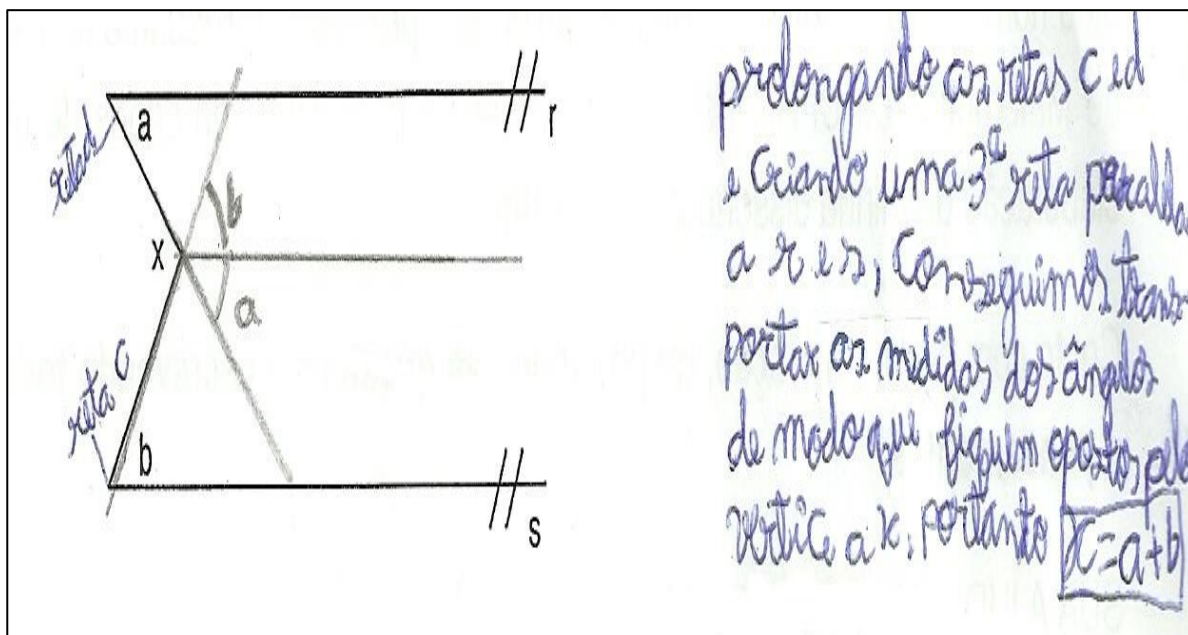 a
r
reta d
b
x
a
reta c
b
s
prolongando as retas c e d
e criando uma 3ª reta paralela
a r e s, conseguimos trans-
portar as medidas dos ângulos
de modo que fiquem opostos pelo
vertice a x, portanto x=a+b